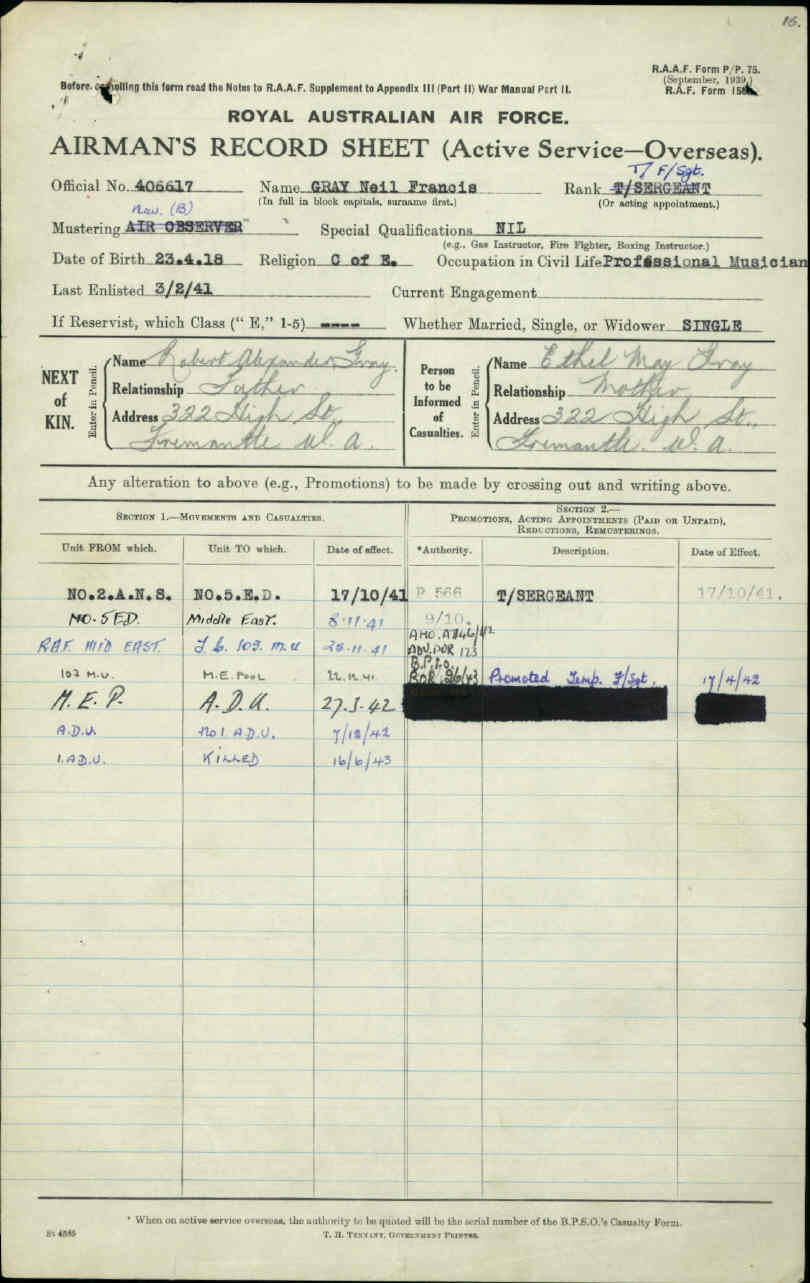 16.
R.A.A.F. Form P/P. 75.
(September, 1939.)
R.A.F. Form 158
Before enrolling this form read the Notes to R.A.A.F. Supplement to Appendix III (Part II) War Manual Part II.
ROYAL AUSTRALIAN AIR FORCE.
AIRMAN'S RECORD SHEET (Active Service—Overseas).
T/ F/Sgt.
Official No. 406617 Name GRAY Neil Francis Rank T/SERGEANT
(In full in block capitals, surname first.) (Or acting appointment.)
Nav. (B)
Mustering AIR OBSERVER Special Qualifications NIL
(e.g., Gas Instructor, Fire Fighter, Boxing Instructor.)
Date of Birth 23.4.18 Religion C of E. Occupation in Civil Life Professional Musician
Last Enlisted 3/2/41 Current Engagement
If Reservist, which Class (" E," 1-5) ---- Whether Married, Single, or Widower SINGLE
NEXT of KIN. Enter in Pencil. Name Robert Alexander Gray.
Relationship Father
Address 322 High St.,
Fremantle W. A.
Person to be Informed of Casualties. Enter in Pencil. Name Ethel May Gray
Relationship Mother
Address 322 High St.,
Fremantle. W. A.
Any alteration to above (e.g., Promotions) to be made by crossing out and writing above.
SECTION 1.—MOVEMENTS AND CASUALTIES.
SECTION 2.—
PROMOTIONS, ACTING APPOINTMENTS (PAID OR UNPAID),
REDUCTIONS, REMUSTERINGS.
Unit FROM which. Unit TO which. Date of effect. *Authority. Description. Date of Effect.
NO.2.A.N.S. NO.5.E.D. 17/10/41 P 566 T/SERGEANT 17/10/41.
NO. 5 ED. Middle East. 8.11.41 9/10.
AMO. A
RAF MID EAST. 102. M.U 25.11.41 ADV. POR 123
B.P.S.O.
102 M.U. M.E. POOL 22.12.41 POR 26/43 Promoted Temp. F/Sgt. 17/4/42
M.E.P. A.D.U. 27.3.42
A.D.U. No 1. A.D.U. 7/12/42
1. A.D.U. KILLED 16/6/43
* When on active service overseas, the authority to be quoted will be the serial number of the B.P.S.O.'s Casualty Form.
4585 T. H. TENNANT, GOVERNMENT PRINTER.